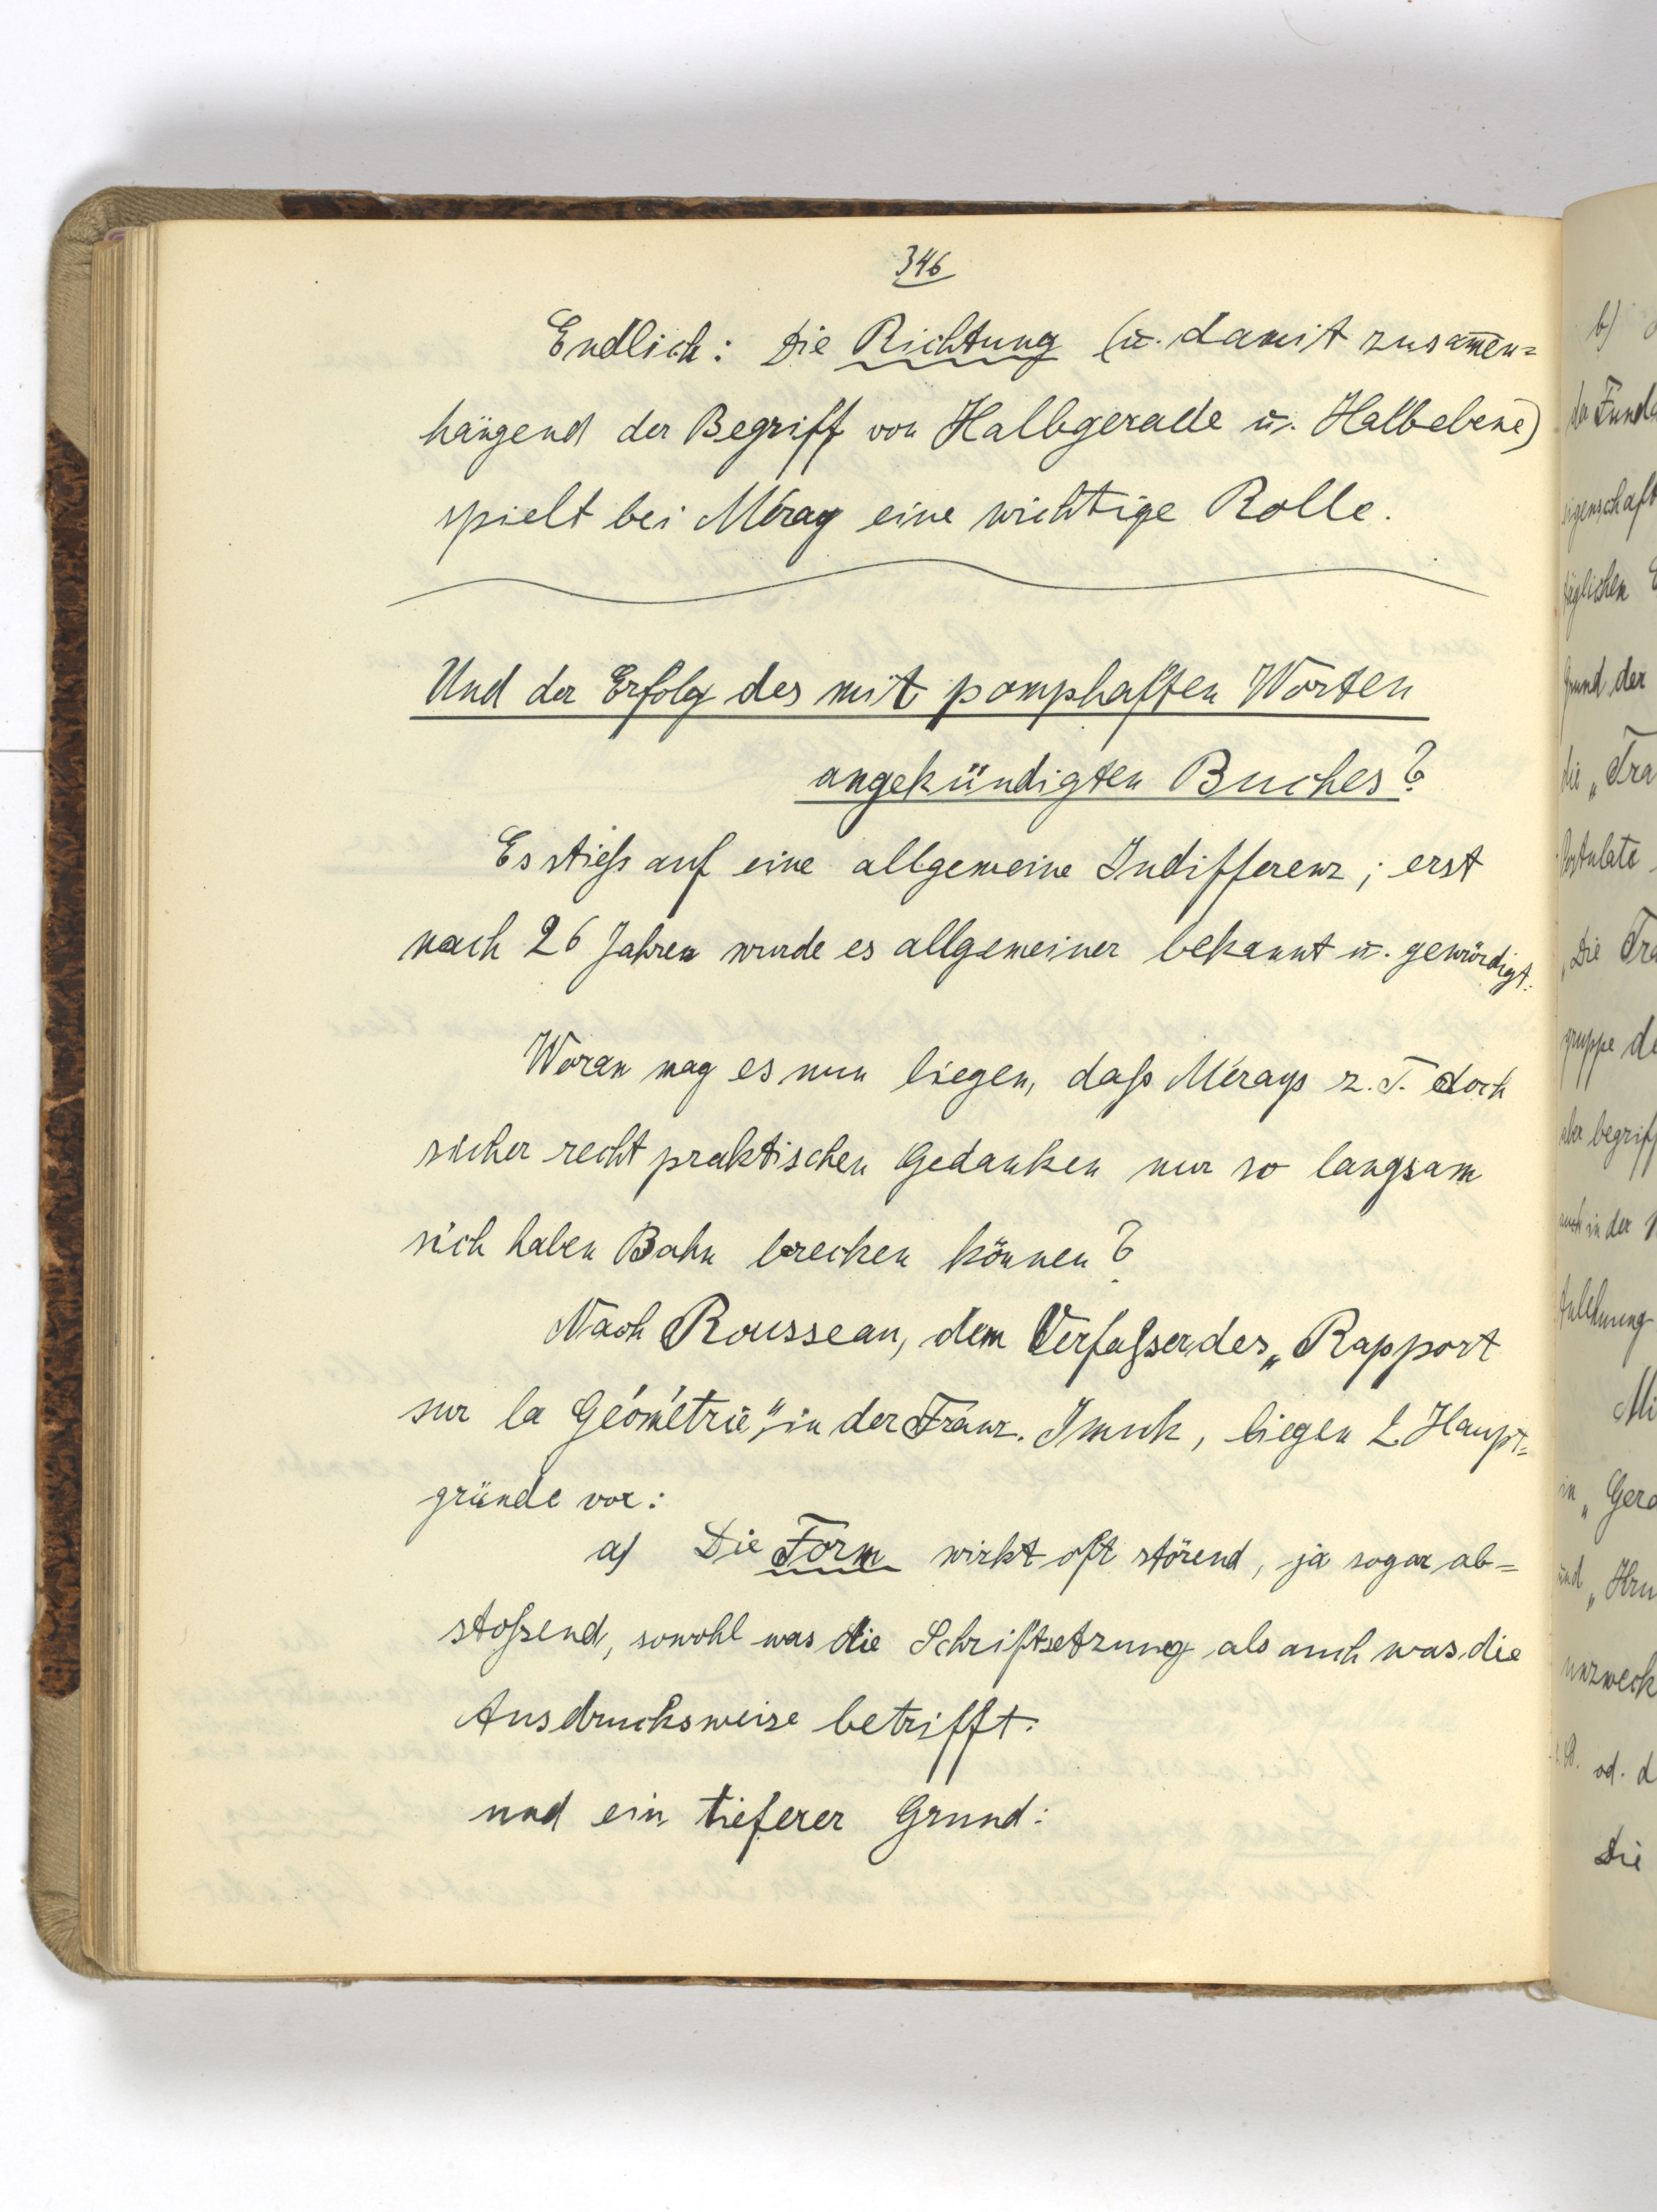 346
Endlich: Die Richtung (u. damit zusam̅en=
hängend der Begriff von Halbgerade u. Halbebene)
spielt bei Méray eine wichtige Rolle.
Und der Erfolg des mit pomphaften Worten
angekündigten Buches?
Es stieß auf eine allgemeine Indifferenz; erst
nach 26 Jahren wurde es allgemeiner bekannt u. gewürdigt.
Woran mag es nun liegen, daß Mérays z. T. doch
sicher recht praktischen Gedanken nur so langsam
sich haben Bahn brechen können?
Nach Rousseau, dem Verfaßer des „Rapport
sur la Géométrie" in der Franz. Imuk, liegen 2 Haupt=
gründe vor:
a) Die Form wirkt oft störend, ja sogar ab=
stoßend, sowohl was die Schriftsetzung als auch was die
Ausdrucksweise betrifft.
und ein tieferer Grund:
b)
der Funda
eigenschaft
täglichen
Grund der
die „Tra
Postulate
„Die Tra
gruppe de
aber begriff
auch in der
Anlehnung
Mi
in „Gera
und „Hru
unzweck
od. d
Die